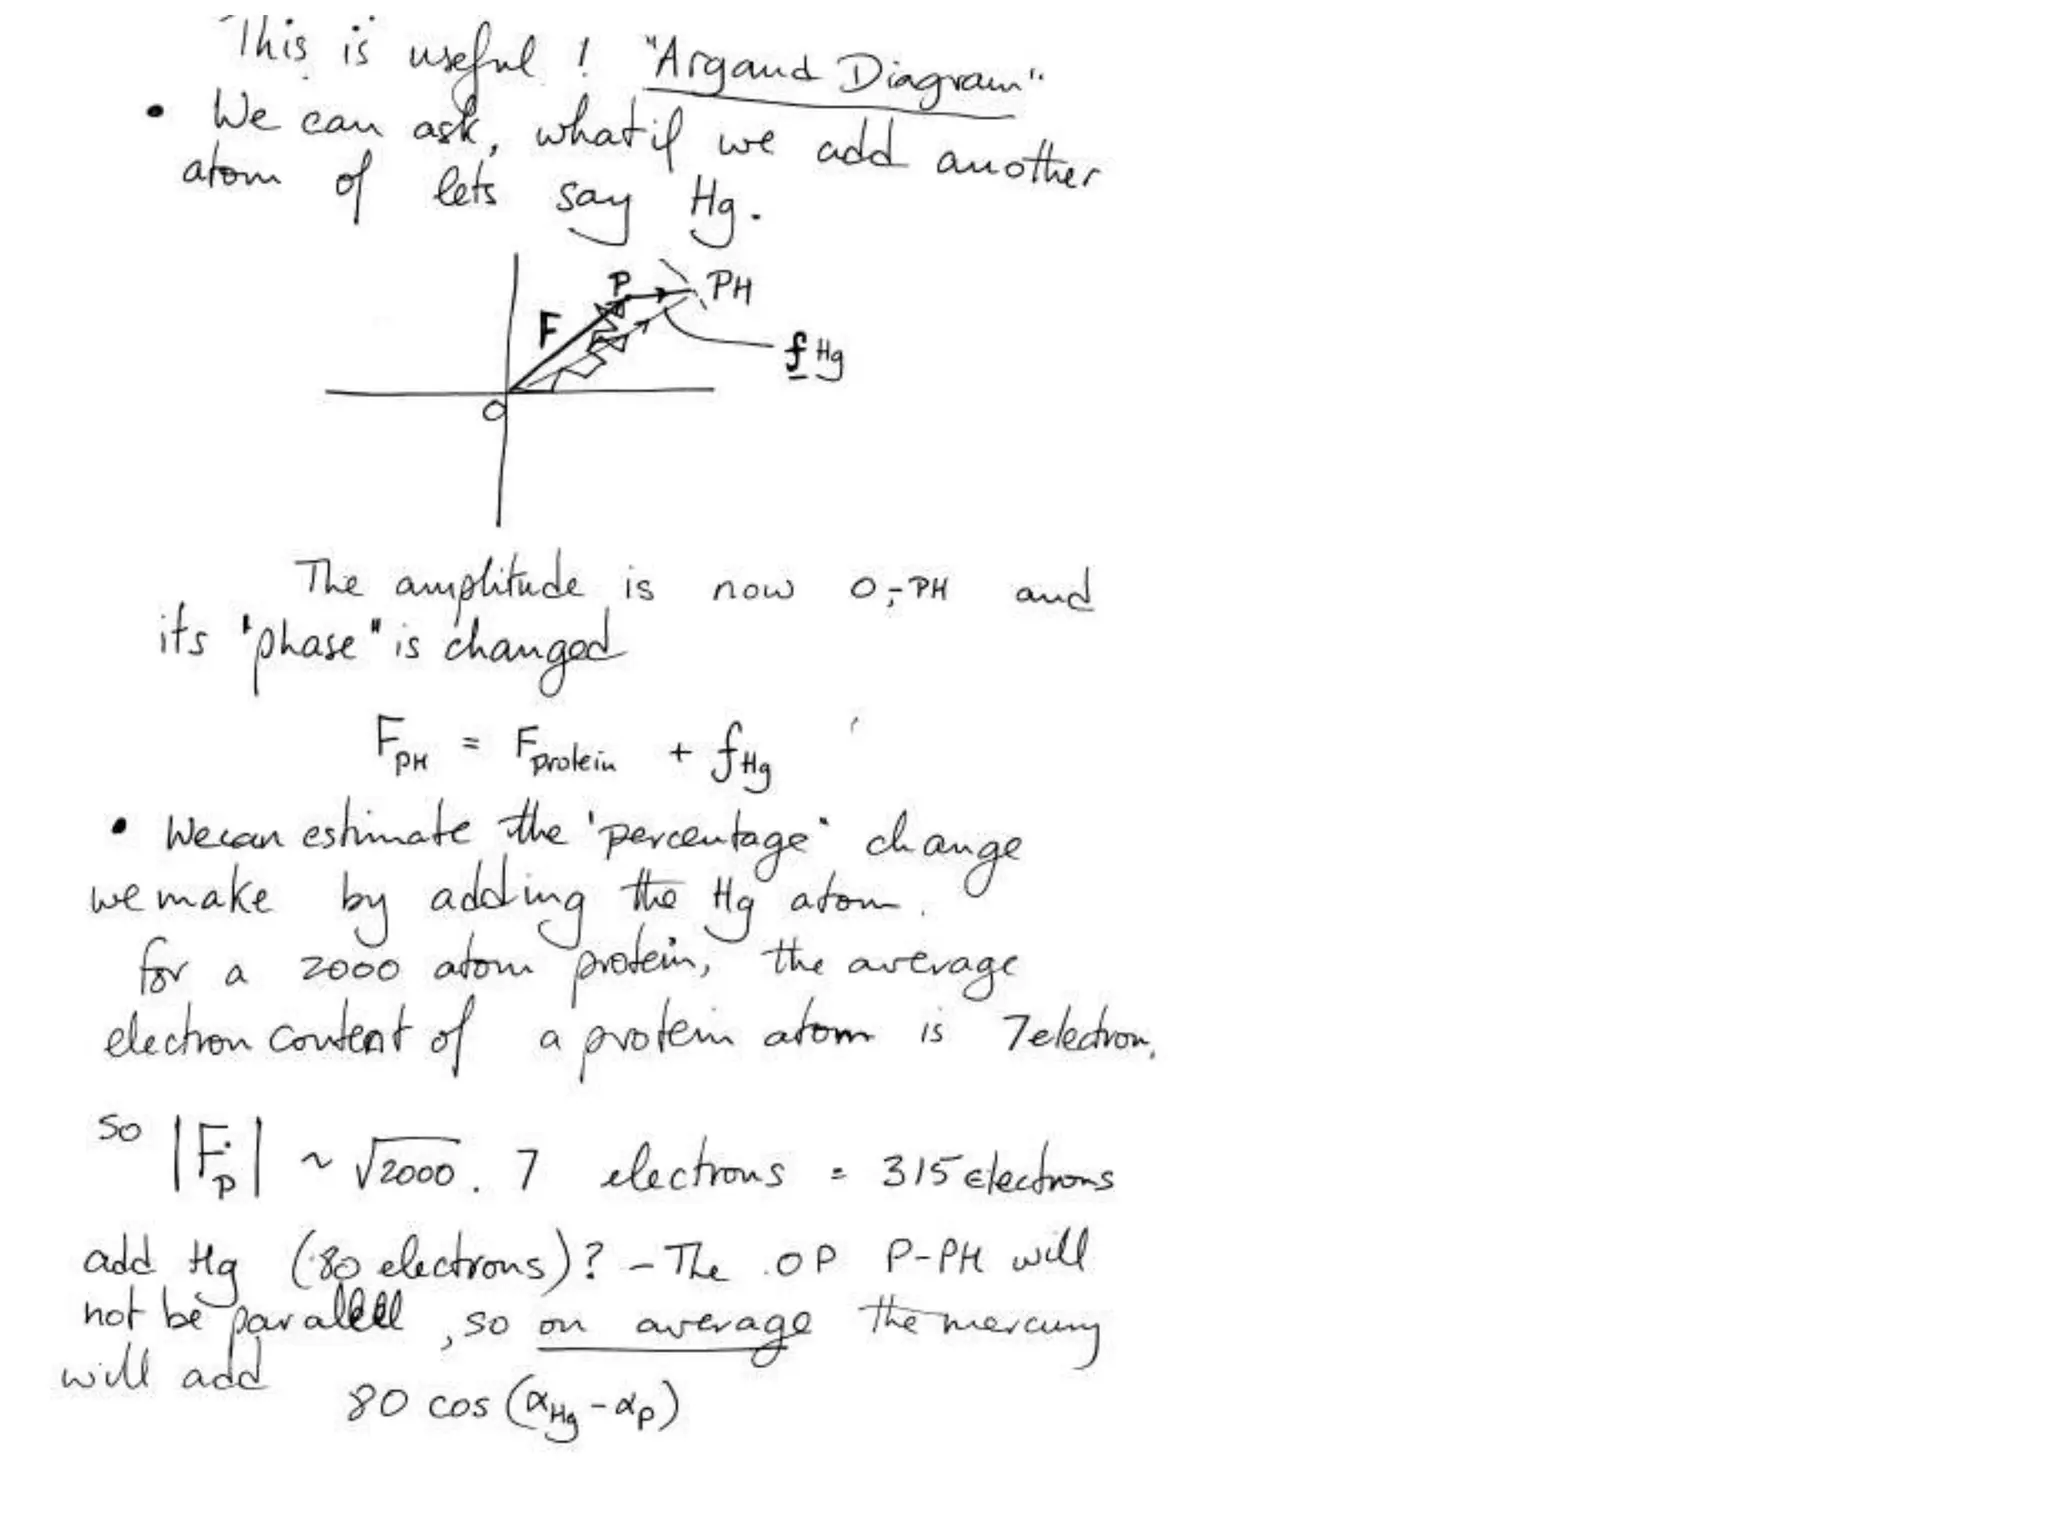 This is useful! "Argand Diagram"
• We can ask, what if we add another
atom of lets say Hg.
P
PH
F
f Hg
O
The amplitude is now O-PH and
its "phase" is changed
F_PH = F_protein + f_Hg
• We can estimate the "percentage" change
we make by adding the Hg atom.
for a 2000 atom protein, the average
electron content of a protein atom is 7 electron.
so |F_P| ~ √2000 . 7 electrons = 315 electrons
add Hg (80 electrons)? – The OP P-PH will
not be parallel, so on average the mercury
will add
80 cos (α_Hg - α_P)